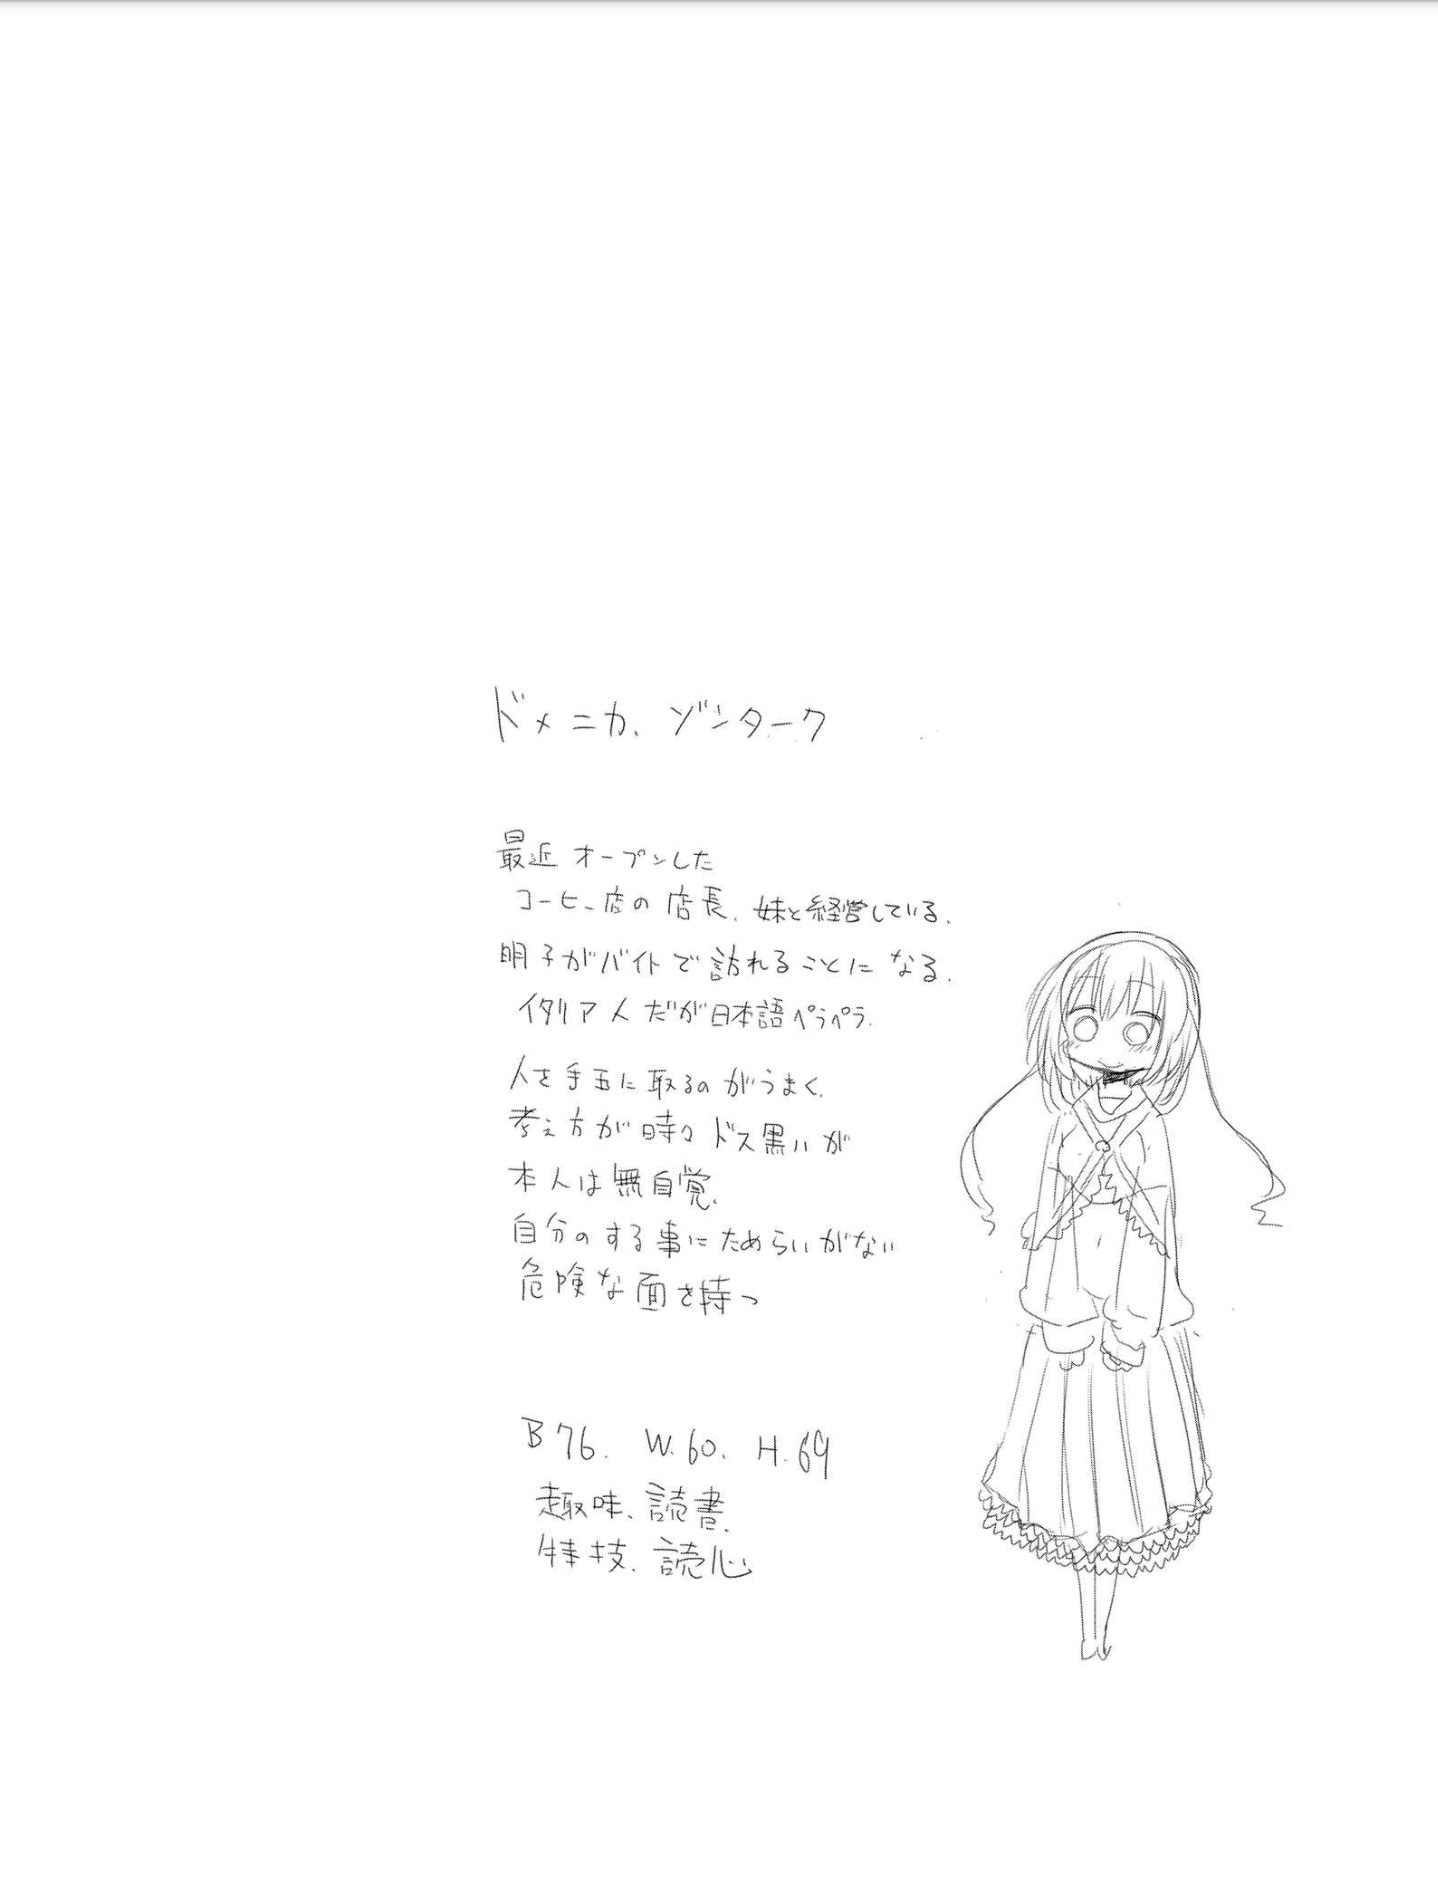 ドメニカ、ゾンターク
最近オープンした
コーヒー店の店長、妹と経営している、
明子がバイトで訪れることになる、
イタリア人だが日本語ペラペラ、
人を手玉に取るのがうまく、
考え方が時々ドス黒いが
本人は無自覚、
自分のする事にためらいがない
危険な面を持つ
B76. W.60. H.69
趣味、読書、
特技、読心